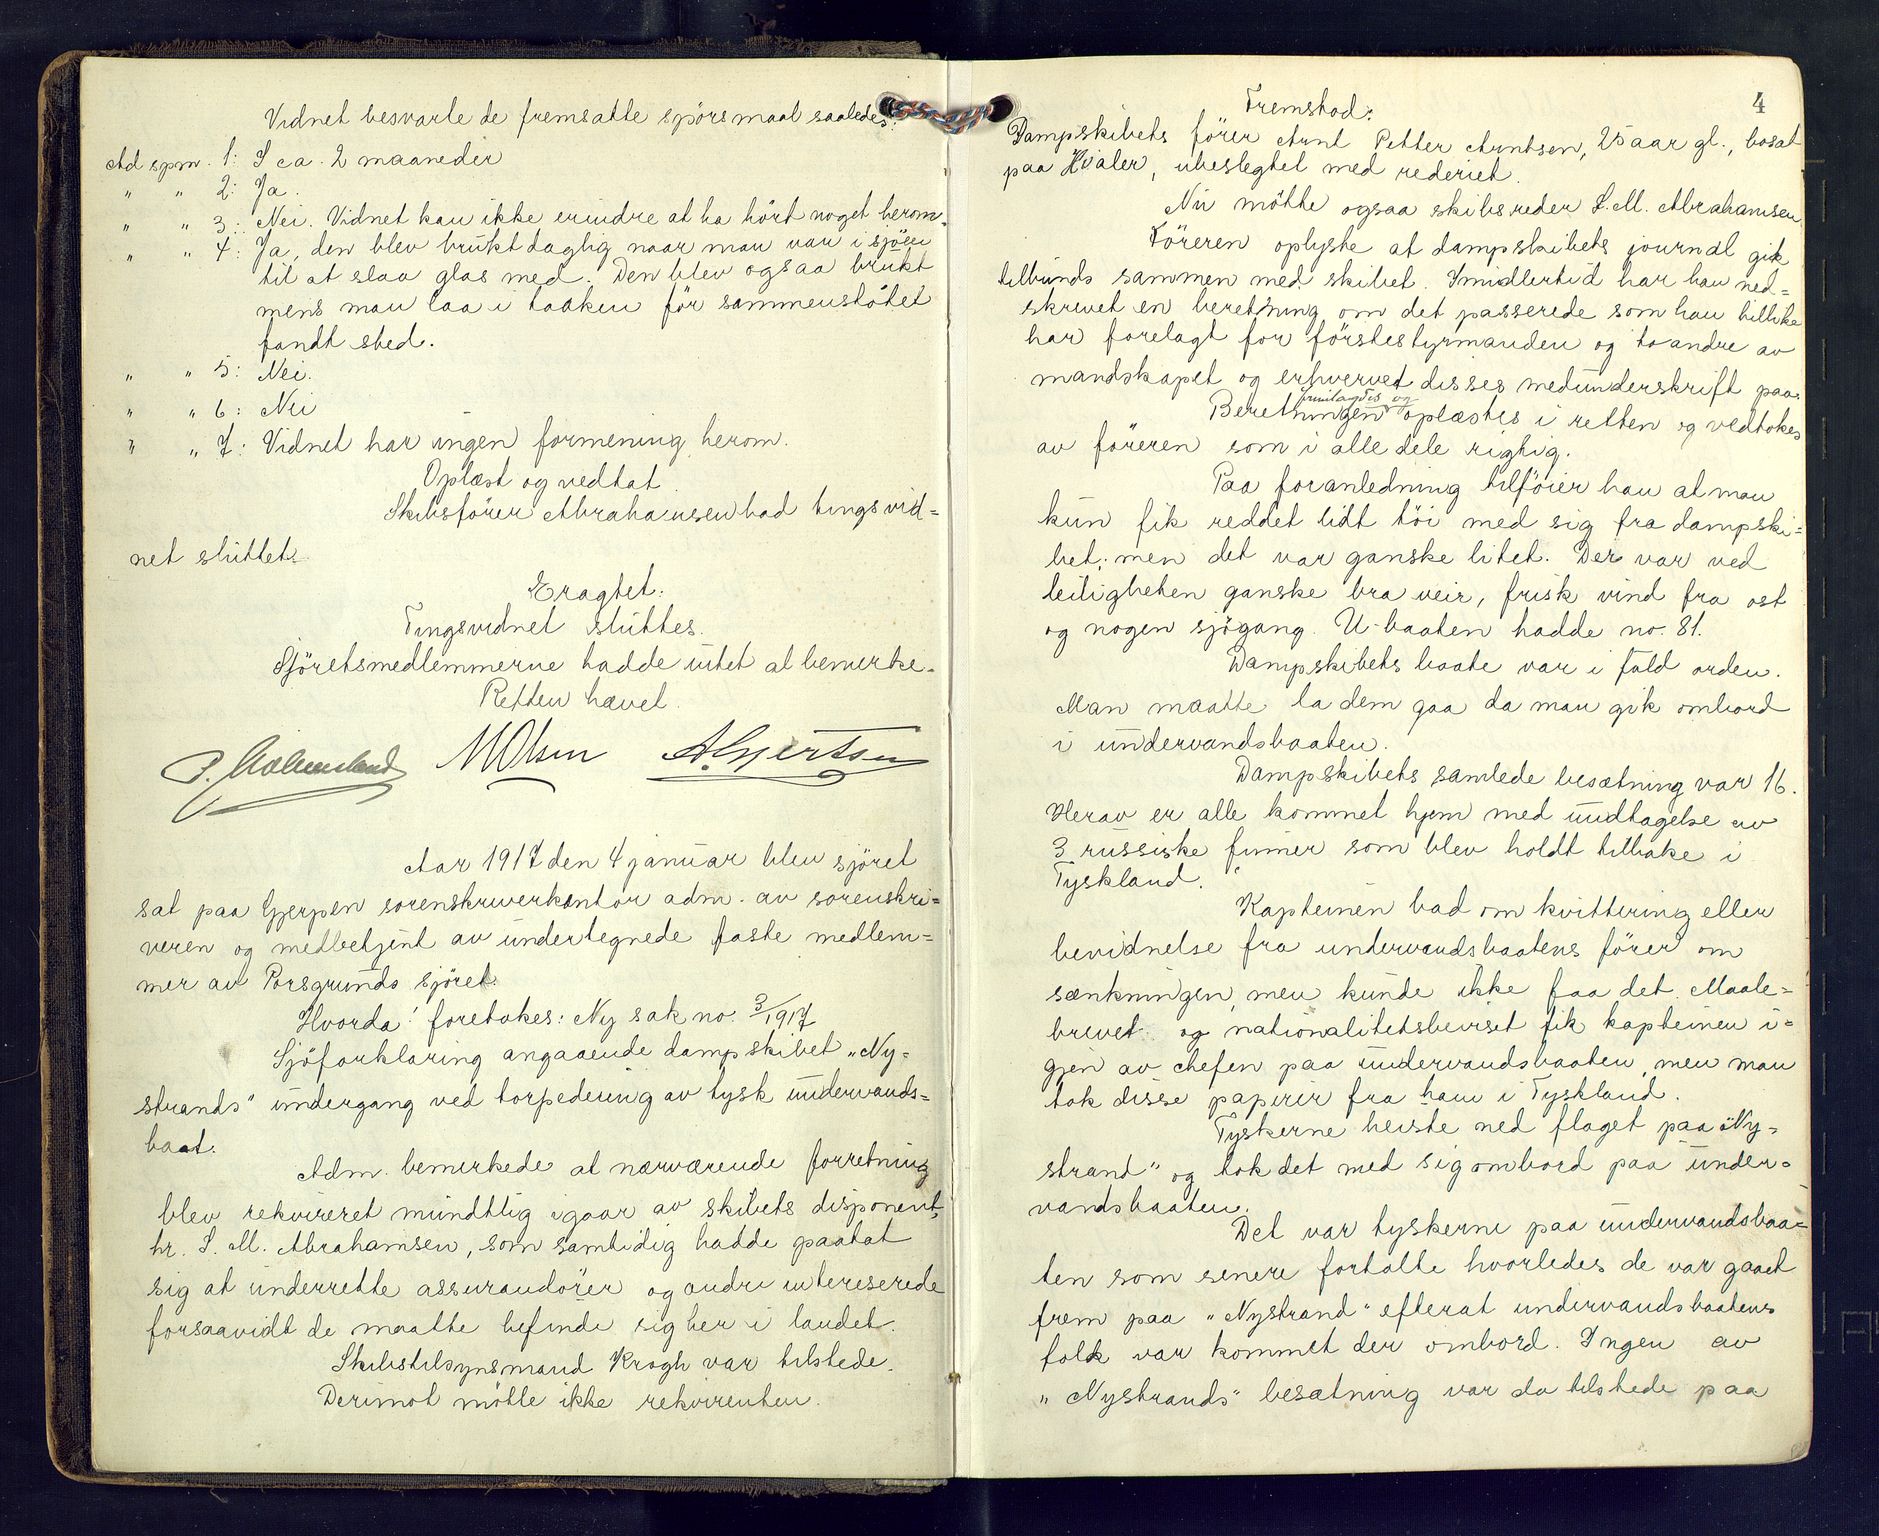 Vidnet besvarte de fremsatte spörsmaal saaledes:
Ad spm. 1: I ca. 2 maaneder
" " 2: Ja.
" " 3: Nei. Vidnet kan ikke erindre at ha hört noget herom.
" " 4: Ja, den blev brukt daglig naar man var i sjöen
til at slaa glas med. Den blev ogsaa brukt
mens man laa i taaken för sammenstötet
fandt sted.
" " 5: Nei.
" " 6: Nei
" " 7: Vidnet har ingen formening herom.
Oplæst og vedtat.
Skibsförer Abrahamsen bad tingsvid=
net sluttet.
Eragtet:
Tingsvidnet sluttes.
Sjöretsmedlemmerne hadde intet at bemerke.
Retten hævet.
MOlsen A. Gjertsen
Aar 1917 den 4 januar blev sjöret
sat paa Gjerpen sorenskriverkontor adm. av sorenskri=
veren og medbetjent av undertegnede faste medlem=
mer av Porsgrunds sjöret.
Hvorda! foretokes: Ny sak no. 3/1917
Sjöforklaring angaaende dampskibet „Ny=
strands" undergang ved torpedering av tysk undervands=
baat.
Adm. bemerkede at nærværende forretning
blev rekvireret mundtlig igaar av skibets disponent,
hr. S. M. Abrahamsen, som samtidig hadde paatat
sig at underrette assurandörer og andre intereserede
forsaavidt de maatte befinde sig her i landet.
Skibstilsynsmand Krogh var tilstede.
Derimot mötte ikke rekvirenten.
4
Fremstod:
Dampskibets förer Arnt Petter Arntsen, 25 aar gl., bosat
paa Hvaler, ubeslegtet med rederiet.
Nu mötte ogsaa skibsreder S. M. Abrahamsen
Föreren oplyste at dampskibets journal gik
tilbunds sammen med skibet. Imidlertid har han ned=
skrevet en beretning om det passerede som han tillike
har forelagt for förstestyrmanden og to andre av
mandskapet og erhvervet disses medunderskrift paa.
fremlagdes og
Beretningen oplæstes i retten og vedtokes
av föreren som i alle dele rigtig.
Paa foranledning tilföier han at man
kun fik reddet lidt töi med sig fra dampski=
bet; men det var ganske litet. Der var ved
leiligheten ganske bra veir, frisk vind fra ost
og nogen sjögang. U-baaten hadde no. 81.
Dampskibets baate var i fuld orden.
Man maatte la dem gaa da man gik ombord
i undervandsbaaten.
Dampskibets samlede besætning var 16.
Herav er alle kommet hjem med undtagelse av
3 russiske finner som blev holdt tilbake i
Tyskland.
Kapteinen bad om kvittering eller
bevidnelse fra undervandsbaatens förer om
sænkningen, men kunde ikke faa det. Maale=
brevet og nationalitetsbeviset fik kapteinen i=
gjen av chefen paa undervandsbaaten, men man
tok disse papirer fra ham i Tyskland.
Tyskerne heiste ned flaget paa „Ny=
strand" og tok det med sig ombord paa under=
vandsbaaten.
Det var tyskerne paa undervandsbaa=
ten som senere fortalte hvorledes de var gaaet
frem paa „Nystrand" efterat undervandsbaatens
folk var kommet der ombord. Ingen av
„Nystrands" besætning var da tilstede paa